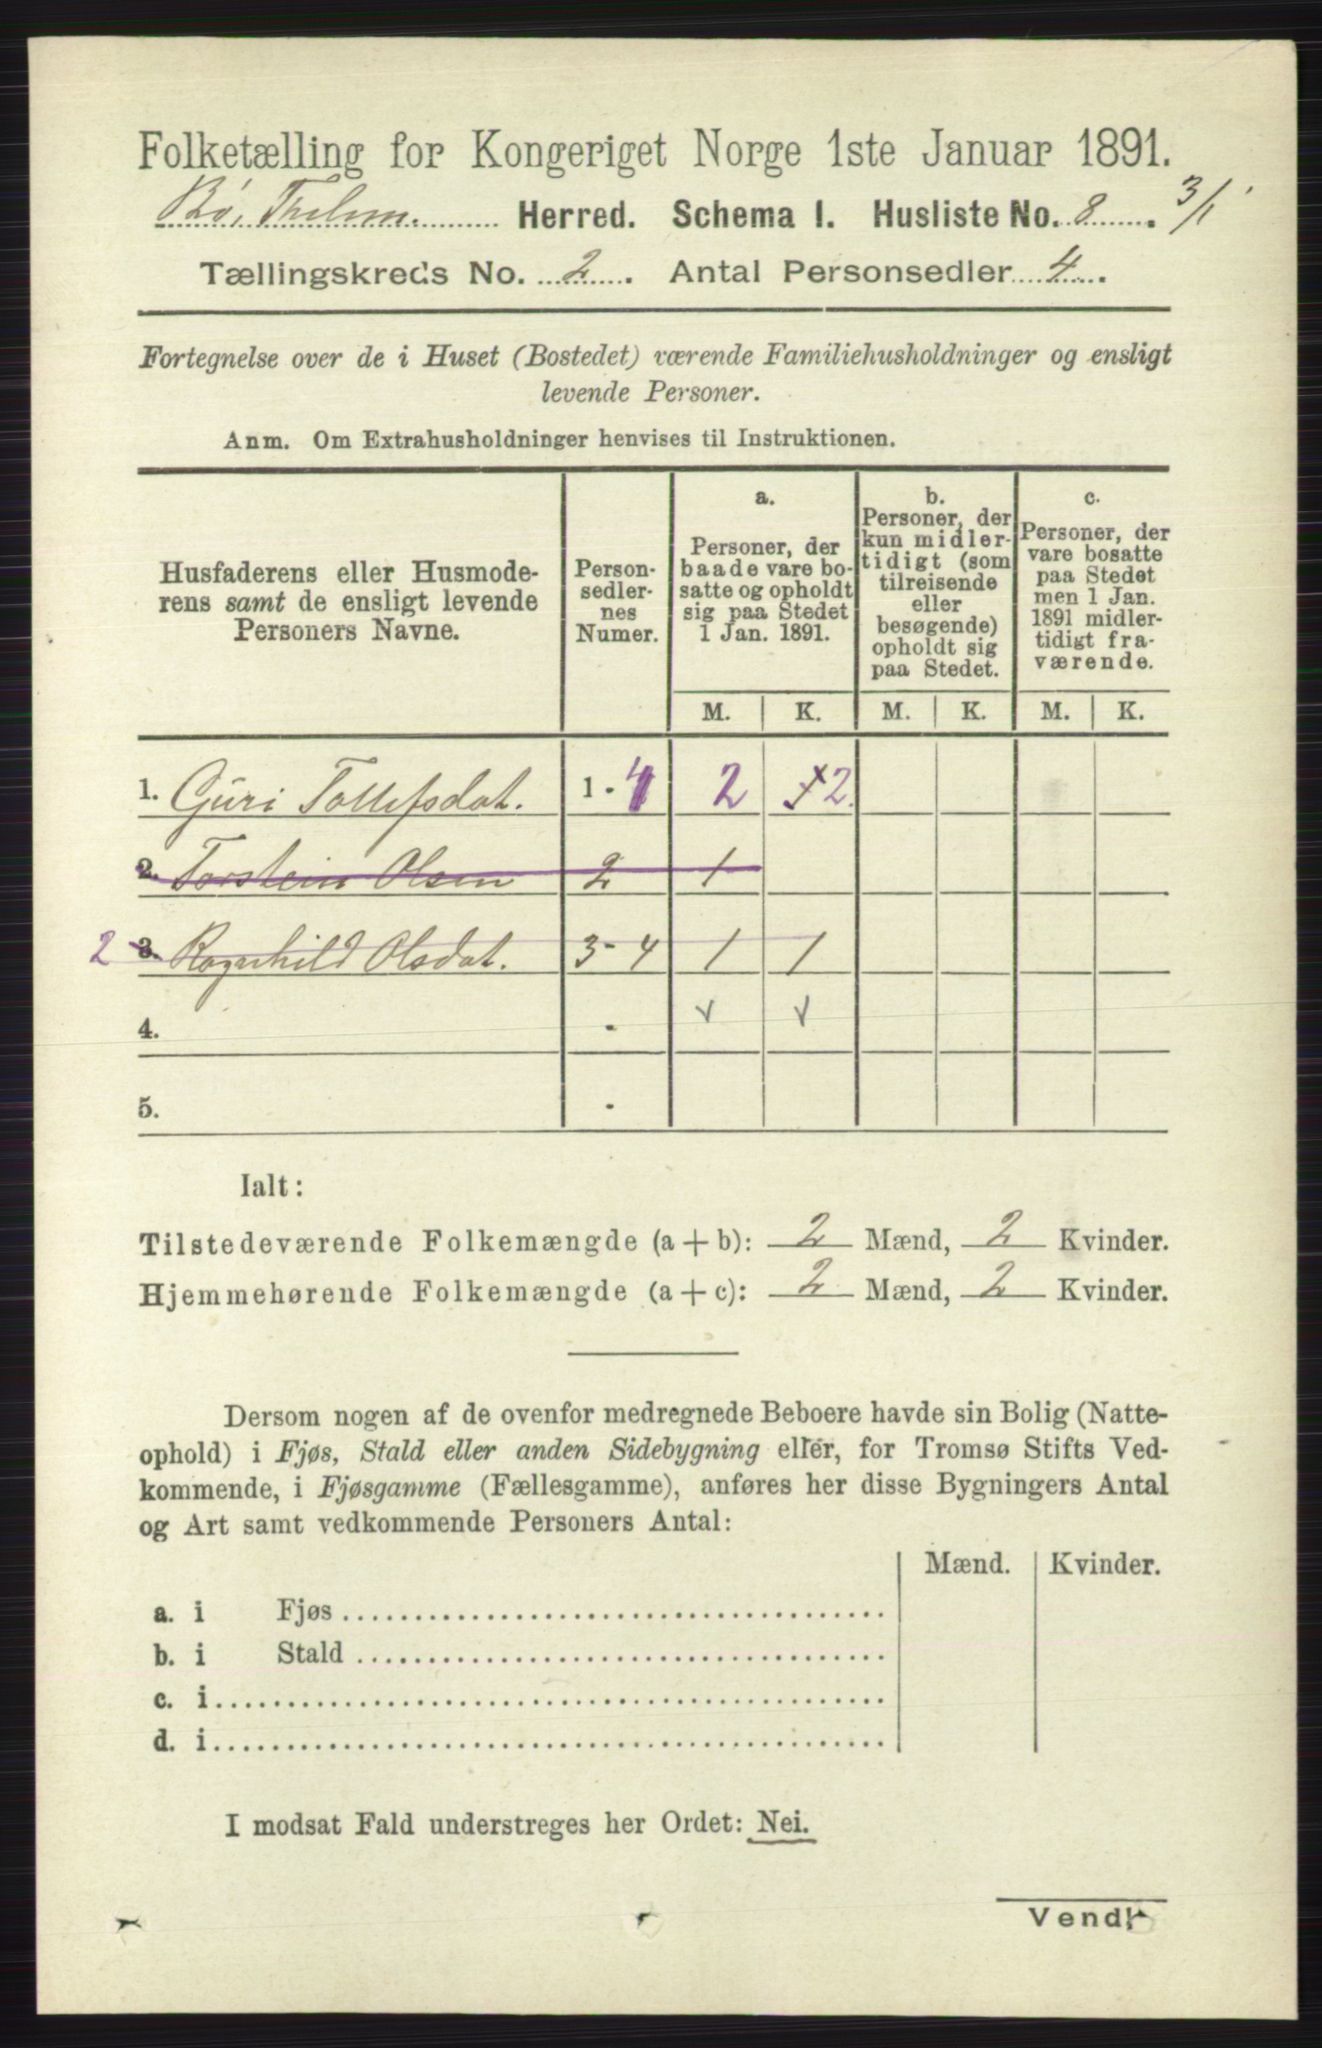 Folketælling for Kongeriget Norge 1ste Januar 1891.
Bø, Thelem. Herred. Schema I. Husliste No. 8. 3/1
Tællingskreds No. 2. Antal Personsedler 4.
Fortegnelse over de i Huset (Bostedet) værende Familiehusholdninger og ensligt
levende Personer.
Anm. Om Extrahusholdninger henvises til Instruktionen.
Husfaderens eller Husmode-
rens samt de ensligt levende
Personers Navne.
Person-
sedler-
nes
Numer.
a.
Personer, der
baade vare bo-
satte og opholdt
sig paa Stedet
1 Jan. 1891.
b.
Personer, der
kun midler-
tidigt (som
tilreisende
eller
besøgende)
opholdt sig
paa Stedet.
c.
Personer, der
vare bosatte
paa Stedet
men 1 Jan.
1891 midler-
tidigt fra-
værende.
M. K. M. K. M. K.
1. Guri Tollefsdat. 1 - 4 2 2
2. Torstein Olsen 2 1
2 3. Ragnhild Olsdat. 3 - 4 1 1
4. - v v
5. -
Ialt:
Tilstedeværende Folkemængde (a + b): 2 Mænd, 2 Kvinder.
Hjemmehørende Folkemængde (a + c): 2 Mænd, 2 Kvinder.
Dersom nogen af de ovenfor medregnede Beboere havde sin Bolig (Natte-
ophold) i Fjøs, Stald eller anden Sidebygning eller, for Tromsø Stifts Ved-
kommende, i Fjøsgamme (Fællesgamme), anføres her disse Bygningers Antal
og Art samt vedkommende Personers Antal:
Mænd. Kvinder.
a. i Fjøs
b. i Stald
c. i
d. i
I modsat Fald understreges her Ordet: Nei.
Vend!